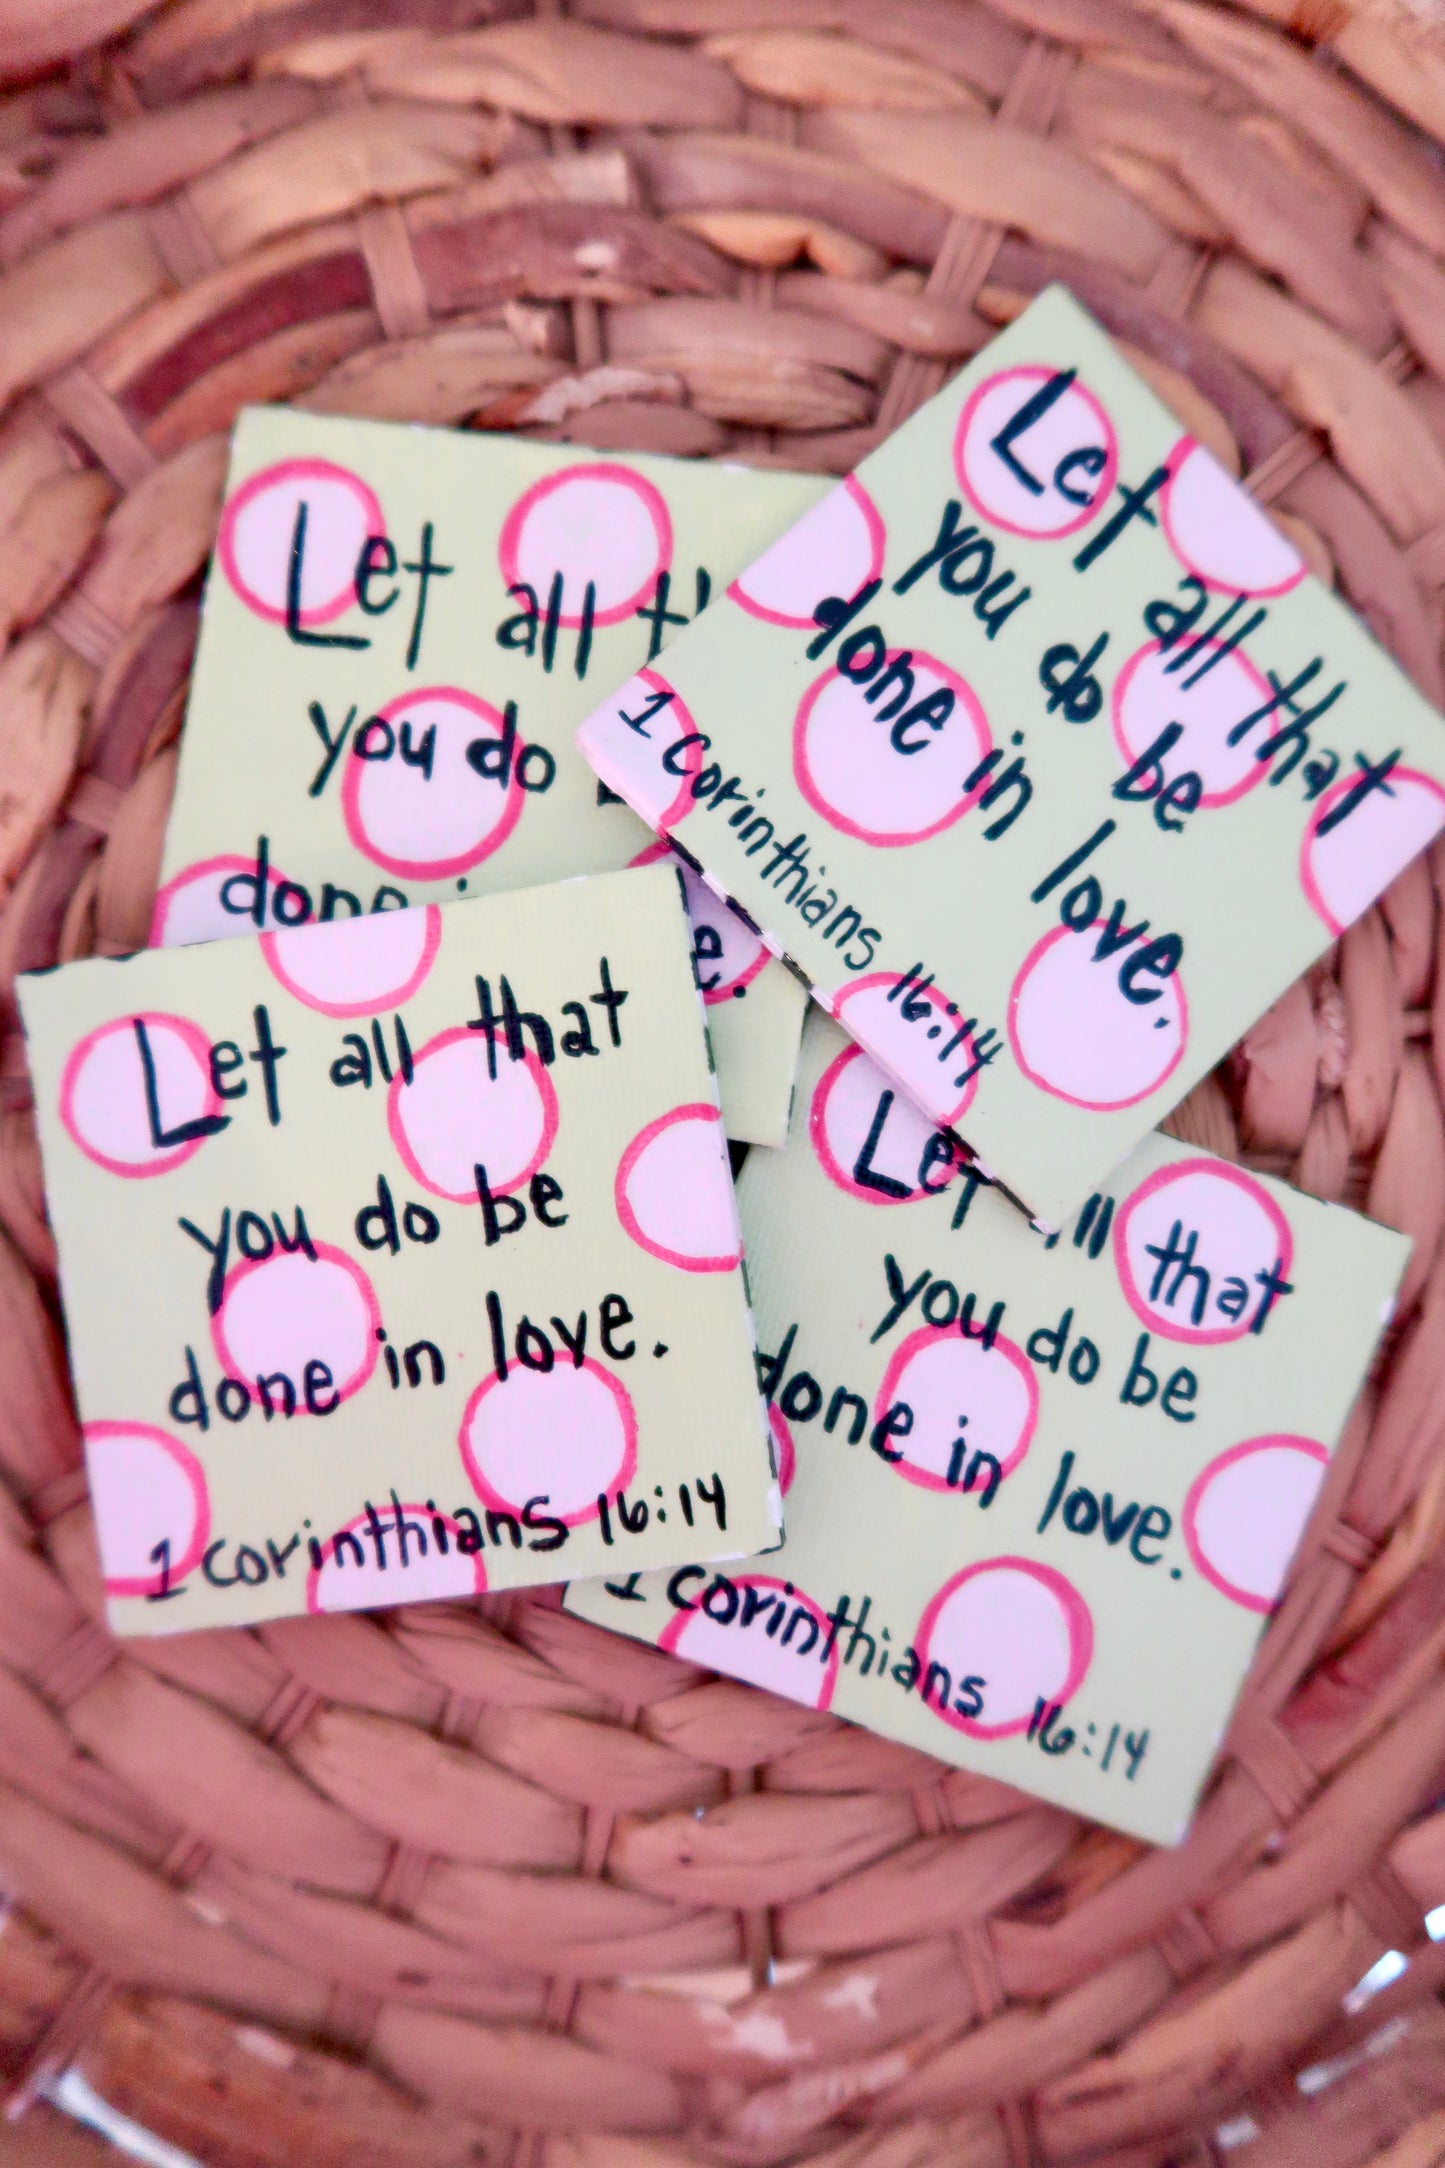 Let all
you do
done
Let all that
you do be
done in love.
1 Corinthians 16:14
Let all that
you do be
done in love.
1 Corinthians 16:14
Let that
you do be
done in love.
1 Corinthians 16:14